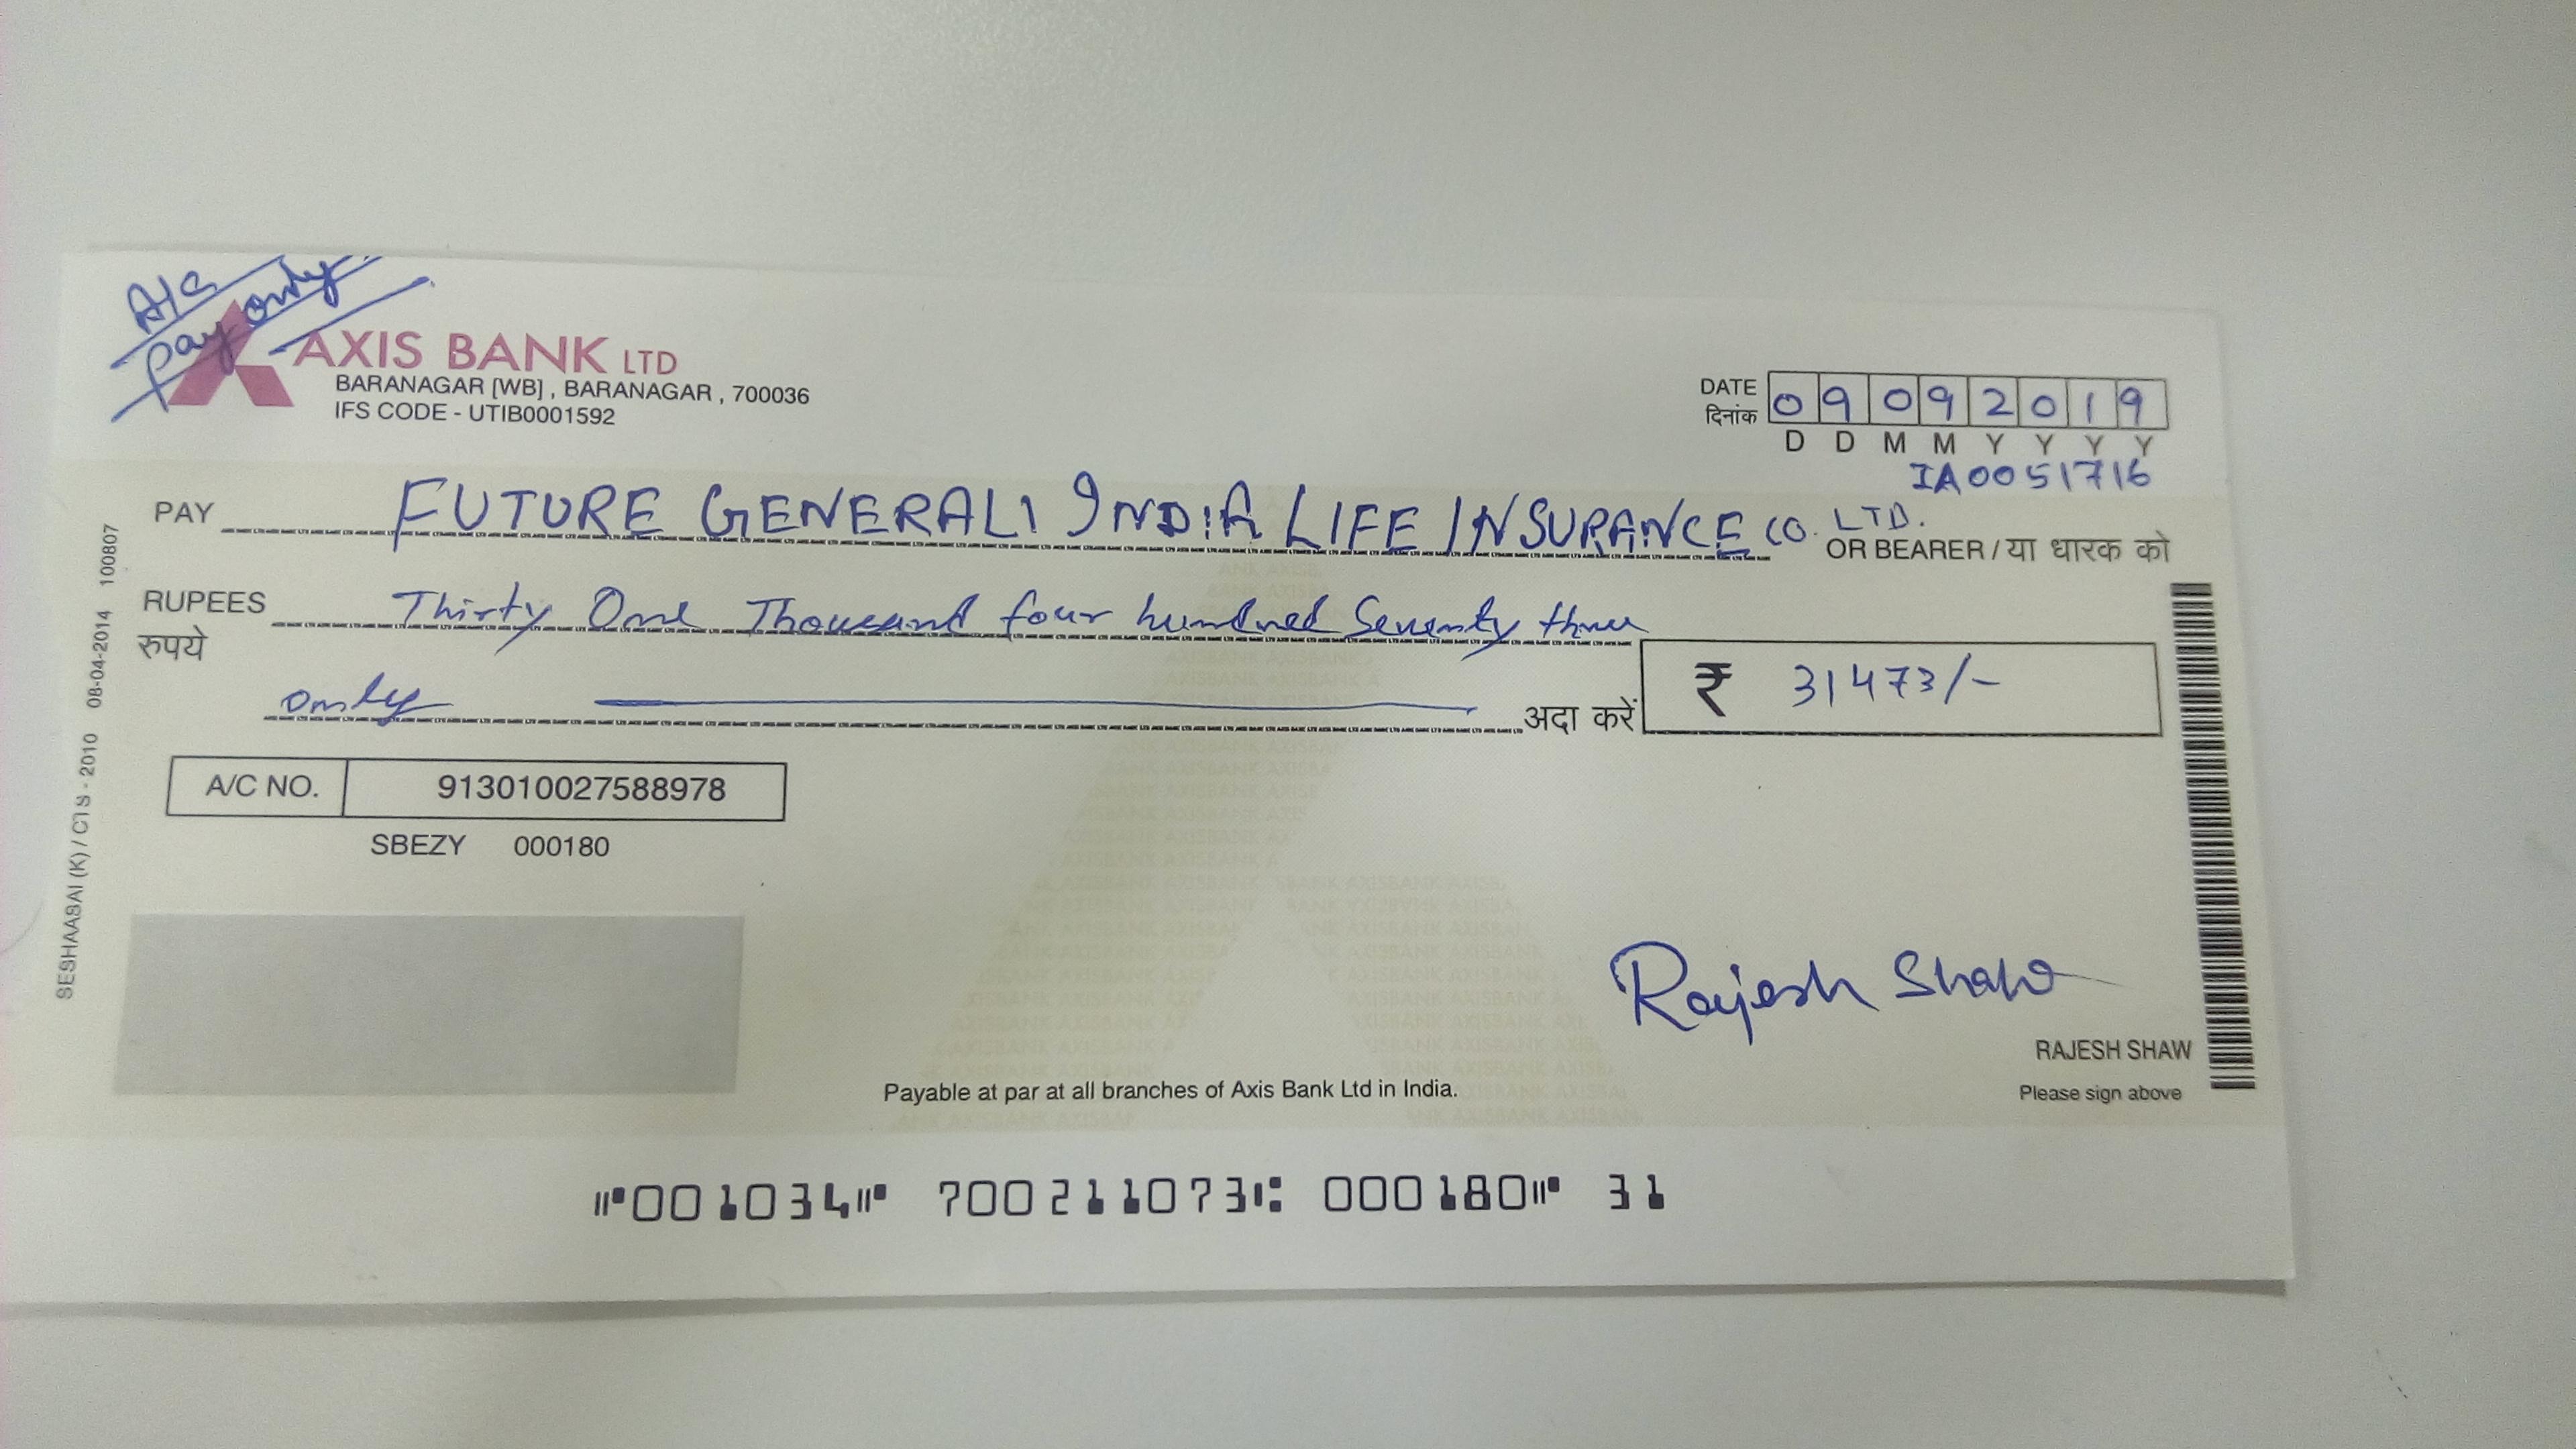 A/C
pay only
AXIS BANK LTD
BARANAGAR [WB] , BARANAGAR , 700036
IFS CODE - UTIB0001592
DATE 09092019
दिनांक D D M M Y Y Y Y
IA0051716
PAY FUTURE GENERALI INDIA LIFE INSURANCE CO. LTD.
OR BEARER / या धारक को
RUPEES Thirty One Thousand four hundred Seventy three
रुपये
only अदा करें
₹ 31473/-
A/C NO. 913010027588978
SBEZY 000180
SESHAASAI (K) / CTS - 2010 08-04-2014 100807
Rajesh Shaw
RAJESH SHAW
Payable at par at all branches of Axis Bank Ltd in India.
Please sign above
⑈001034⑈ 700211073⑆ 000180⑈ 31